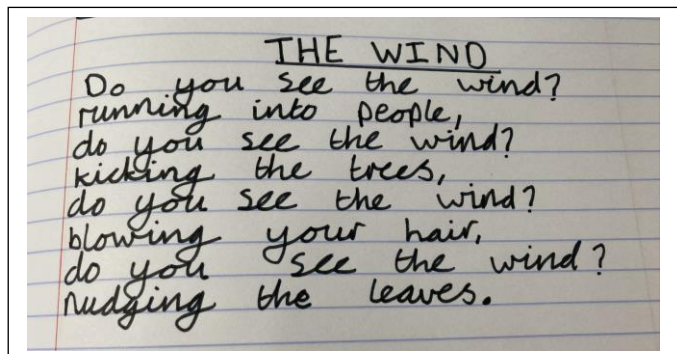 THE WIND
Do you see the wind?
running into people,
do you see the wind?
kicking the trees,
do you see the wind?
blowing your hair,
do you see the wind?
nudging the leaves.